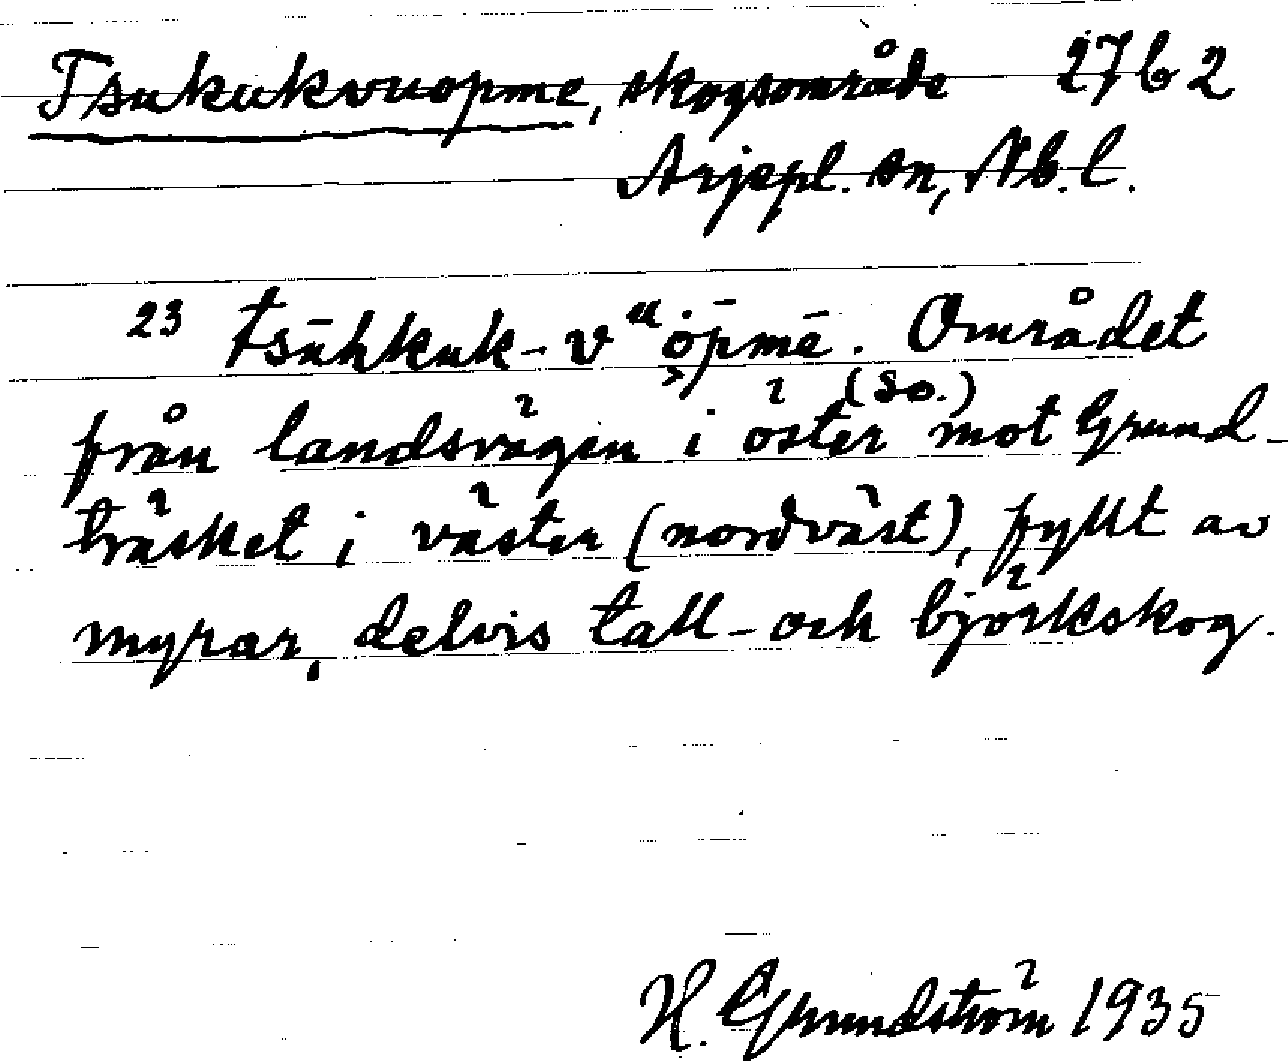 Tsukukvuopme, skogsområde 27b2
Arjepl. sn, Nb.l.
23 tsūhkuk-vᵘȯ̬p̄mē. Området
från landsvägen i öster (so.) mot Grund-
träsket i väster (nordväst), fyllt av
myrar, delvis tall- och björkskog.
H. Grundström 1935